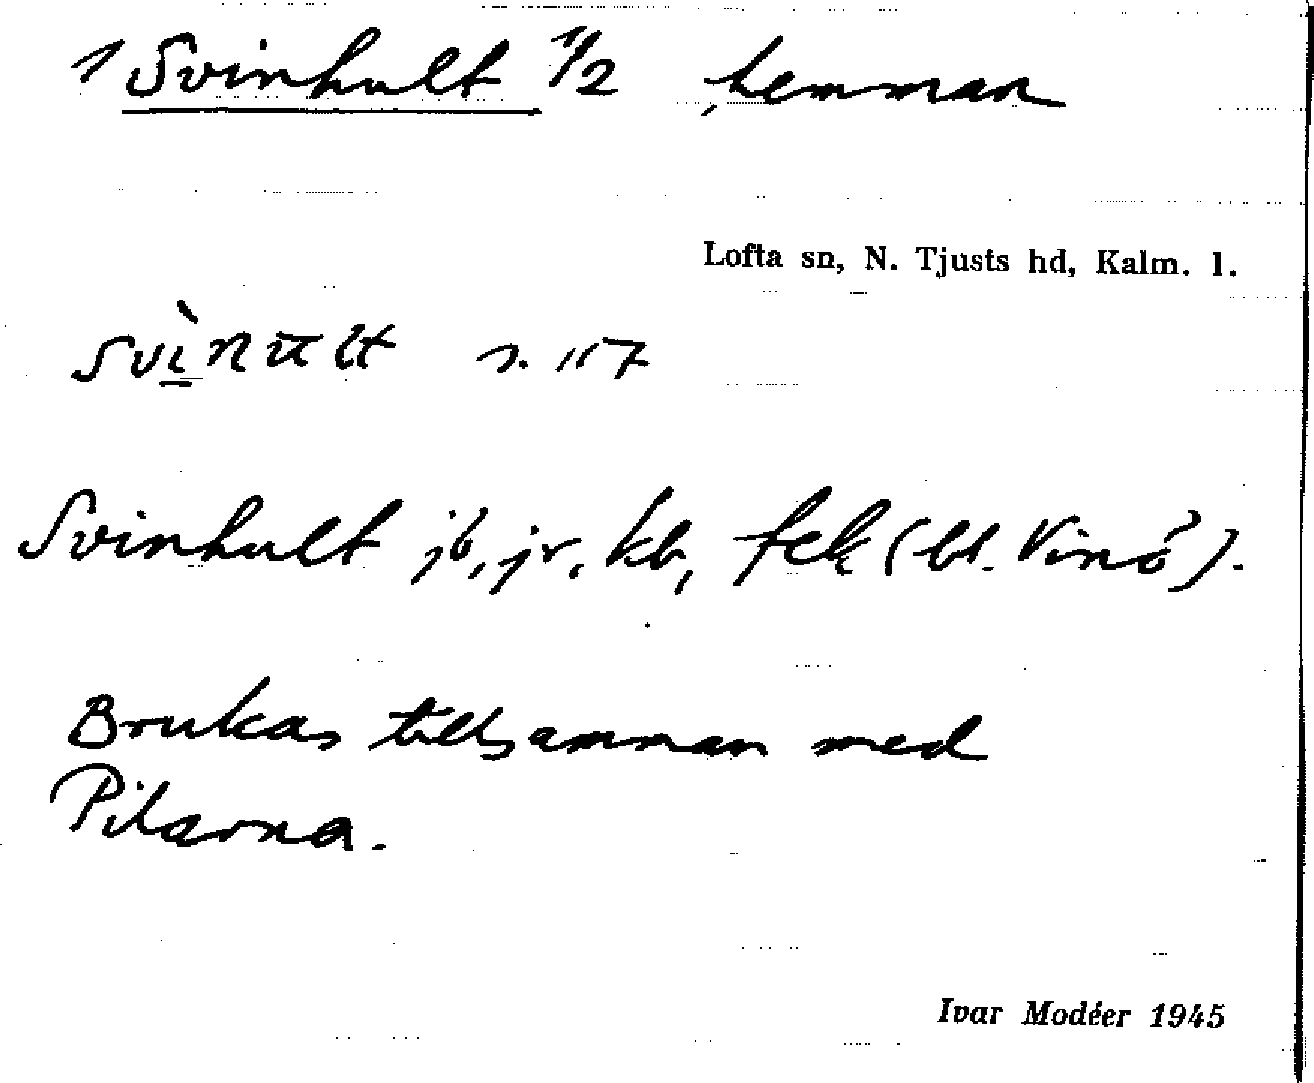 1 Svinhult 1/2 hemman
Lofta sn, N. Tjusts hd, Kalm. l.
s. 117
Svinhult jb, jr, kb, fek (bl. Vinö).
Brukas tillsamman med
Pilarna.
Ivar Modéer 1945